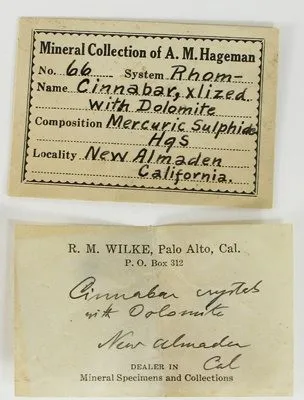 Mineral Collection of A. M. Hageman
No. 66 System Rhom-
Name Cinnabar, xlized
with Dolomite
Composition Mercuric Sulphide
HgS
Locality New Almaden
California.
R. M. WILKE, Palo Alto, Cal.
P. O. Box 312
Cinnabar crystals
with Dolomite
New Almaden
Cal
DEALER IN
Mineral Specimens and Collections